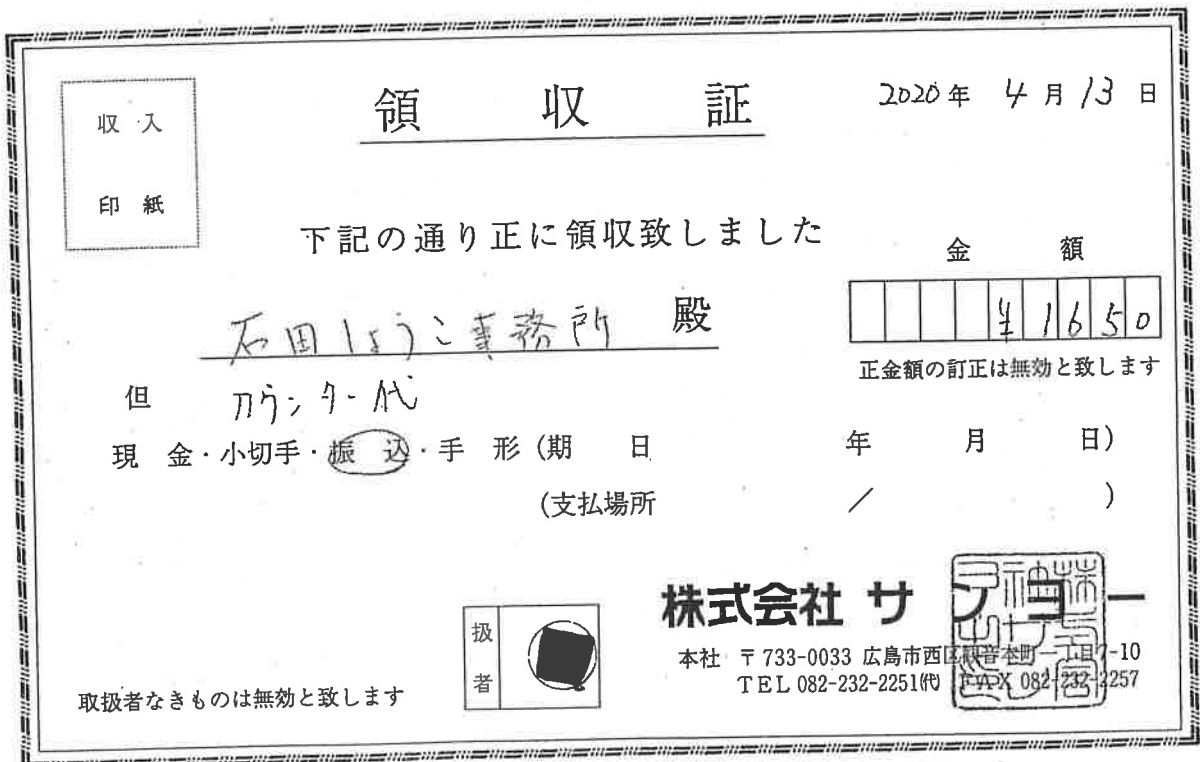 収入
印紙
領収証
2020年 4月13日
下記の通り正に領収致しました
金額
石田しょうこ事務所 殿
¥1650
正金額の訂正は無効と致します
但 カウンター代
現金・小切手・振込・手形(期日 年 月 日)
(支払場所 / )
株式会社サンヨー
扱者
本社 〒733-0033 広島市西区観音本町一丁目7-10
TEL 082-232-2251㈹ FAX 082-232-2257
取扱者なきものは無効と致します